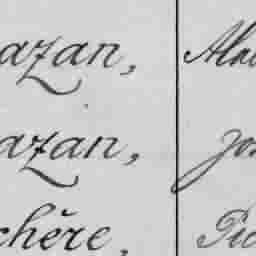 azan, Ala
azan, Jos
chère, Pie